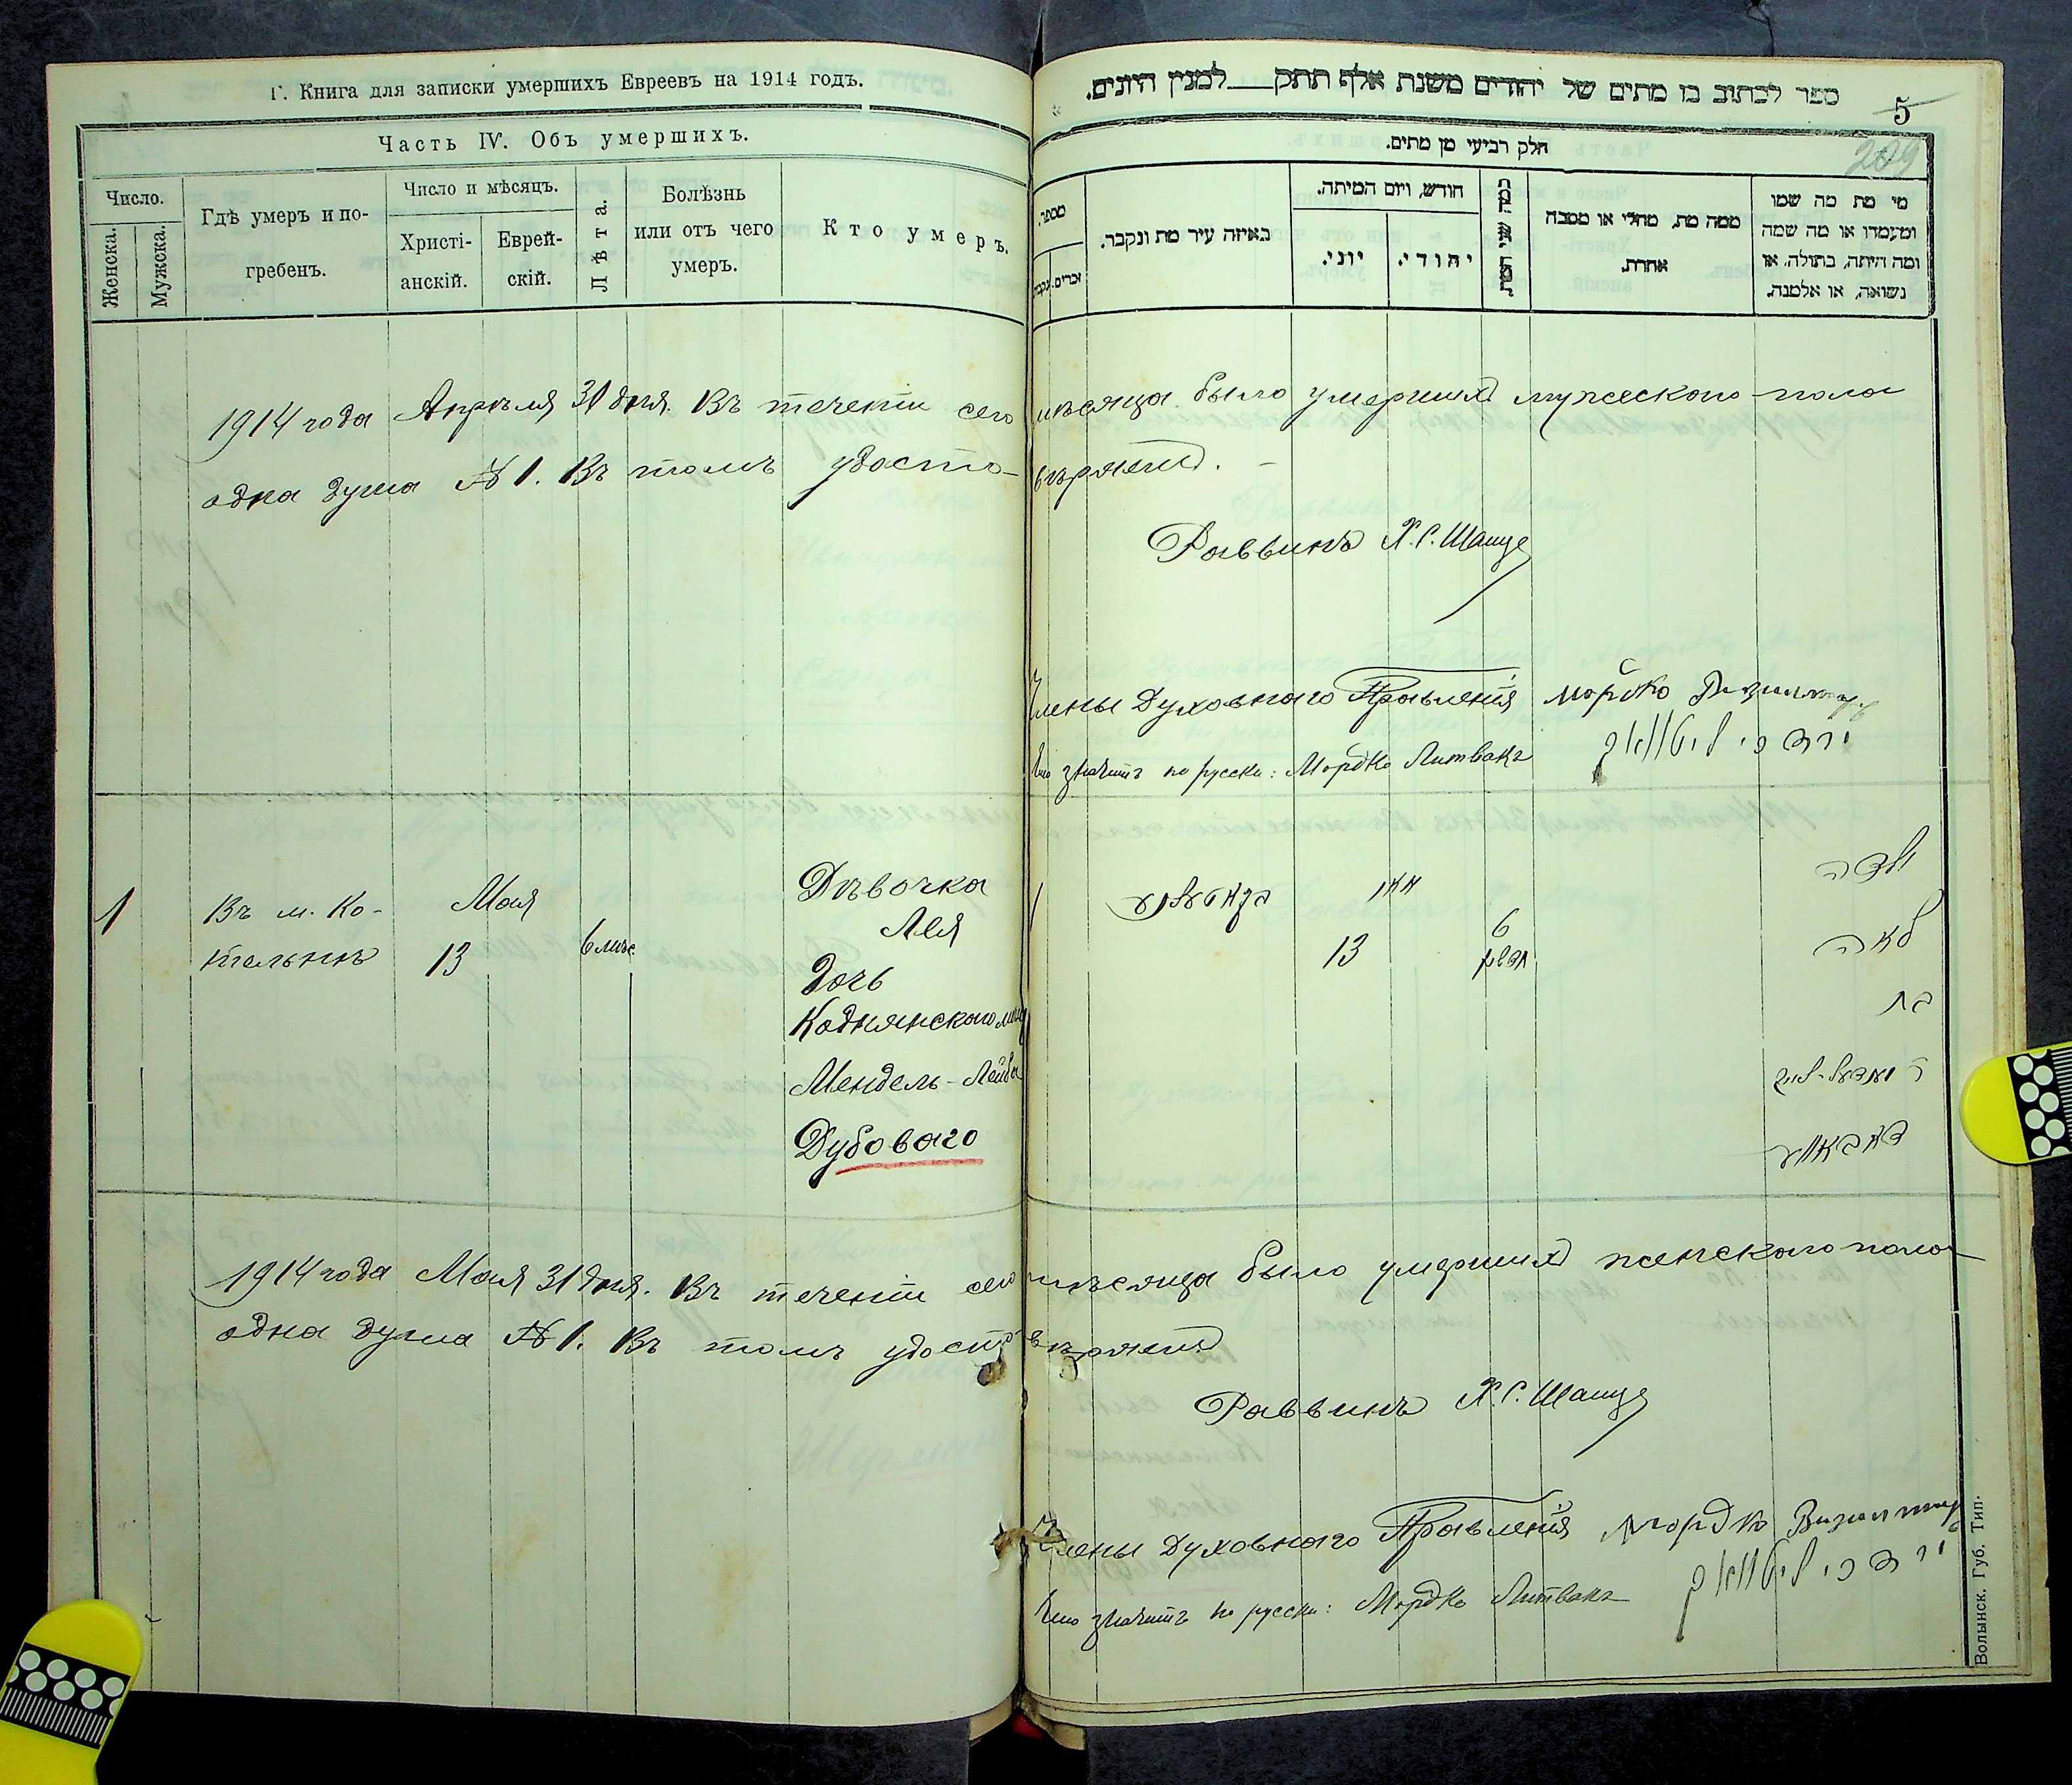 Г. Книга для записки умершихъ Евреевъ на 1914 годъ.
Часть IV. Объ умершихъ.
Число.
Женска.
Мужска.
Гдѣ умеръ и по-
гребенъ.
Число и мѣсяцъ.
Христі-
анскій.
Еврей-
скій.
Лѣта.
Болѣзнь
или отъ чего
умеръ.
Кто умеръ.
ספר לכתוב בו מתים של יהודים משנת אלף תתק למנין היונים.
5
209
חלק רביעי מן מתים.
מספר.
זכרים.
נקבות
באיזה עיר מת ונקבר.
חודש, ויום המיתה.
יוני.
יהודי.
כמה שני המת
ממה מת, מחלי או מסבה
אחרת.
מי מת מה שמו
ומעמדו או מה שמה
ומה היתה, בתולה, או
נשואה, או אלמנה.
1914 года Апрѣля 31 дня. Въ теченіи сего мѣсяца было умершихъ мужескаго пола
одна душа № 1. Въ томъ удосто-вѣряемъ.
Раввинъ Х. С. Шапце
Члены Духовнаго Правленія Мордко
מרדכי ליטוואק
Что значитъ по русски: Мордко Литвакъ
1
Въ м. Ко-
тельнѣ
Мая
13
6 мѣс.
Дѣвочка
Лея
Дочь
Коднянскаго мѣщ
Мендель-Лейба
Дубоваго
1
קאטעלניע
מאי
13
6
חדשים
ילדה
לאה
בת
ר' מענדעל-ליב
1914 года Мая 31 дня. Въ теченіи сего мѣсяца было умершихъ женскаго пола
одна душа № 1. Въ томъ удостовѣряемъ
Раввинъ Х. С. Шапце
Члены Духовнаго Правленія Мордко
מרדכי ליטוואק
Что значитъ по русски: Мордко Литвакъ
Волынск. Губ. Тип.